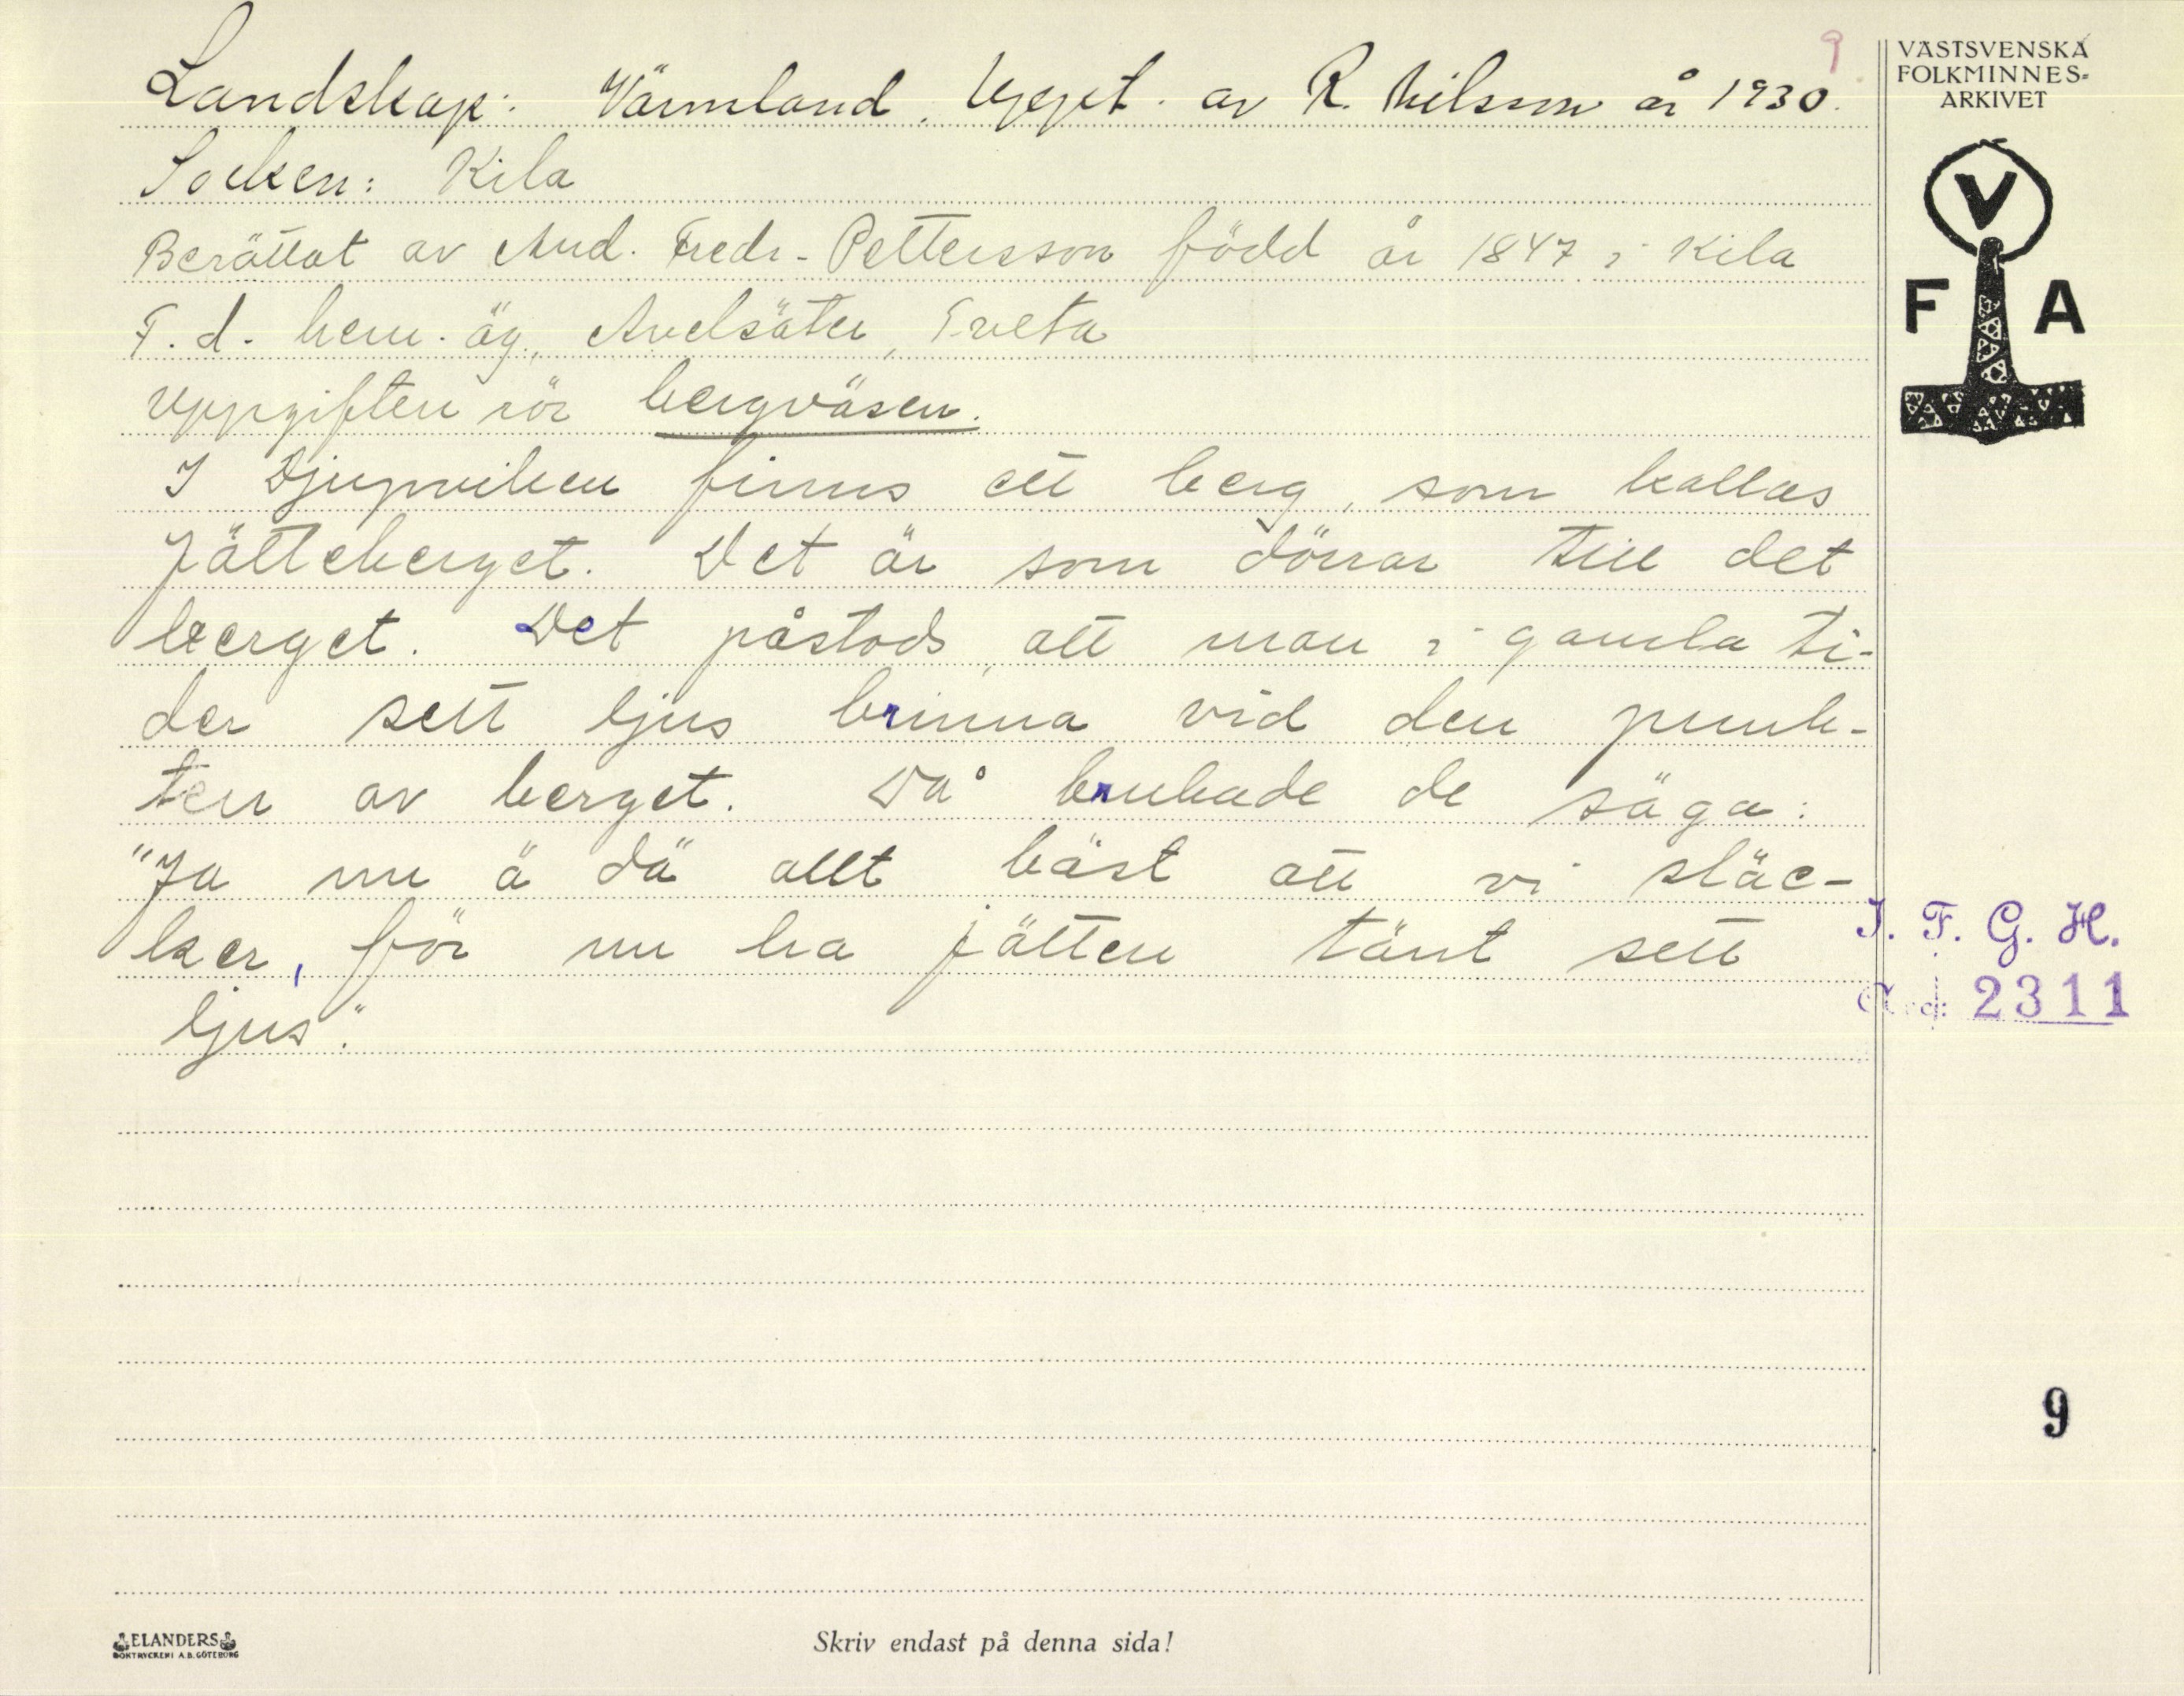 9
Landskap: Värmland. Uppt. av R. Nilsson år 1930.
Socken: Kila
Berättat av And. Fredr. Pettersson född år 1847 i Kila
F.d. hem. äg., Avelsäter, Tveta
Uppgiften rör bergväsen.
I Djupviken finns ett berg, som kallas
Jätteberget. Det är som dörrar till det
berget. Det påstods, att man i gamla ti-
der sett ljus brinna vid den punk-
ten av berget. Då brukade de säga:
"Ja nu ä dä allt bäst att vi släc-
ker, för nu ha jätten tänt sett
ljus".
VÄSTSVENSKA
FOLKMINNES-
ARKIVET
V
F A
I. F. G. H.
Acc: 2311
9
ELANDERS
BOKTRYCKERI A.B. GÖTEBORG
Skriv endast på denna sida!